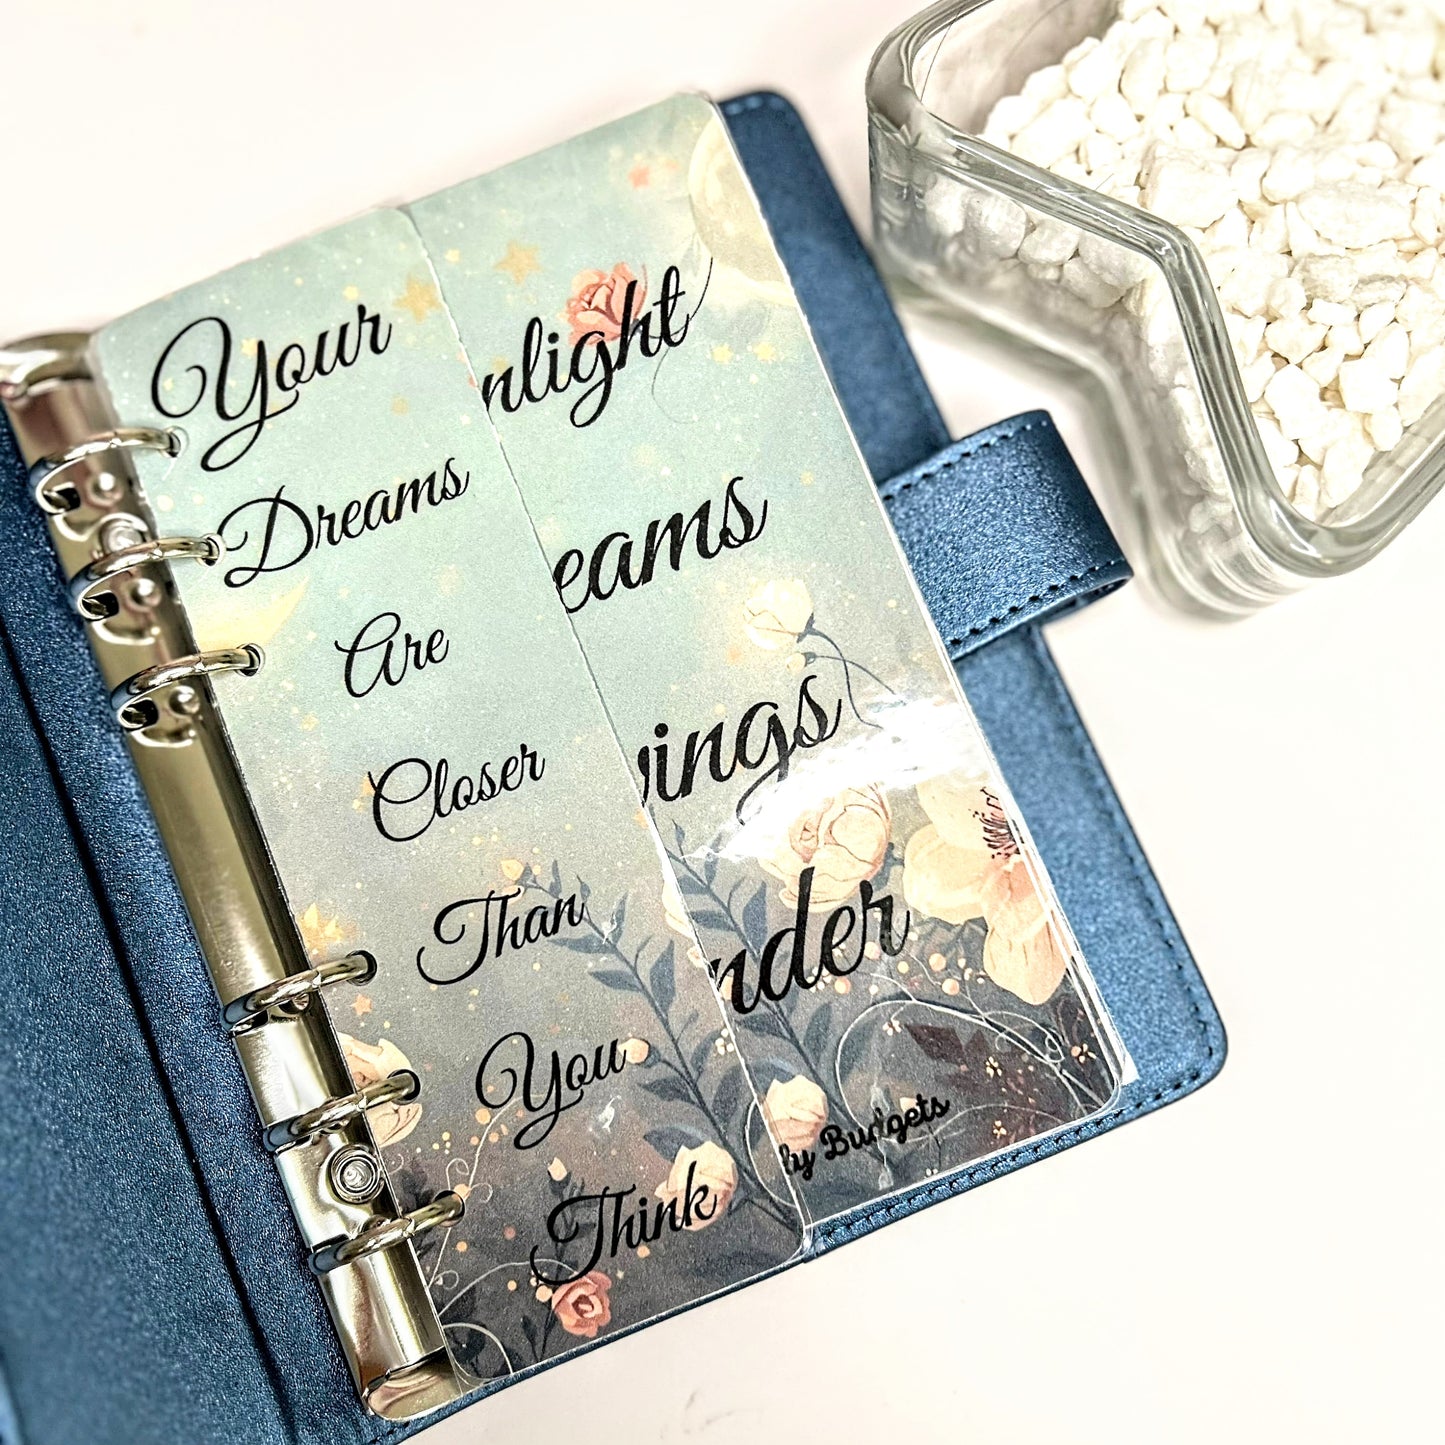 Your
Dreams
Are
Closer
Than
You
Think
nlight
eams
ings
nder
ly Budgets